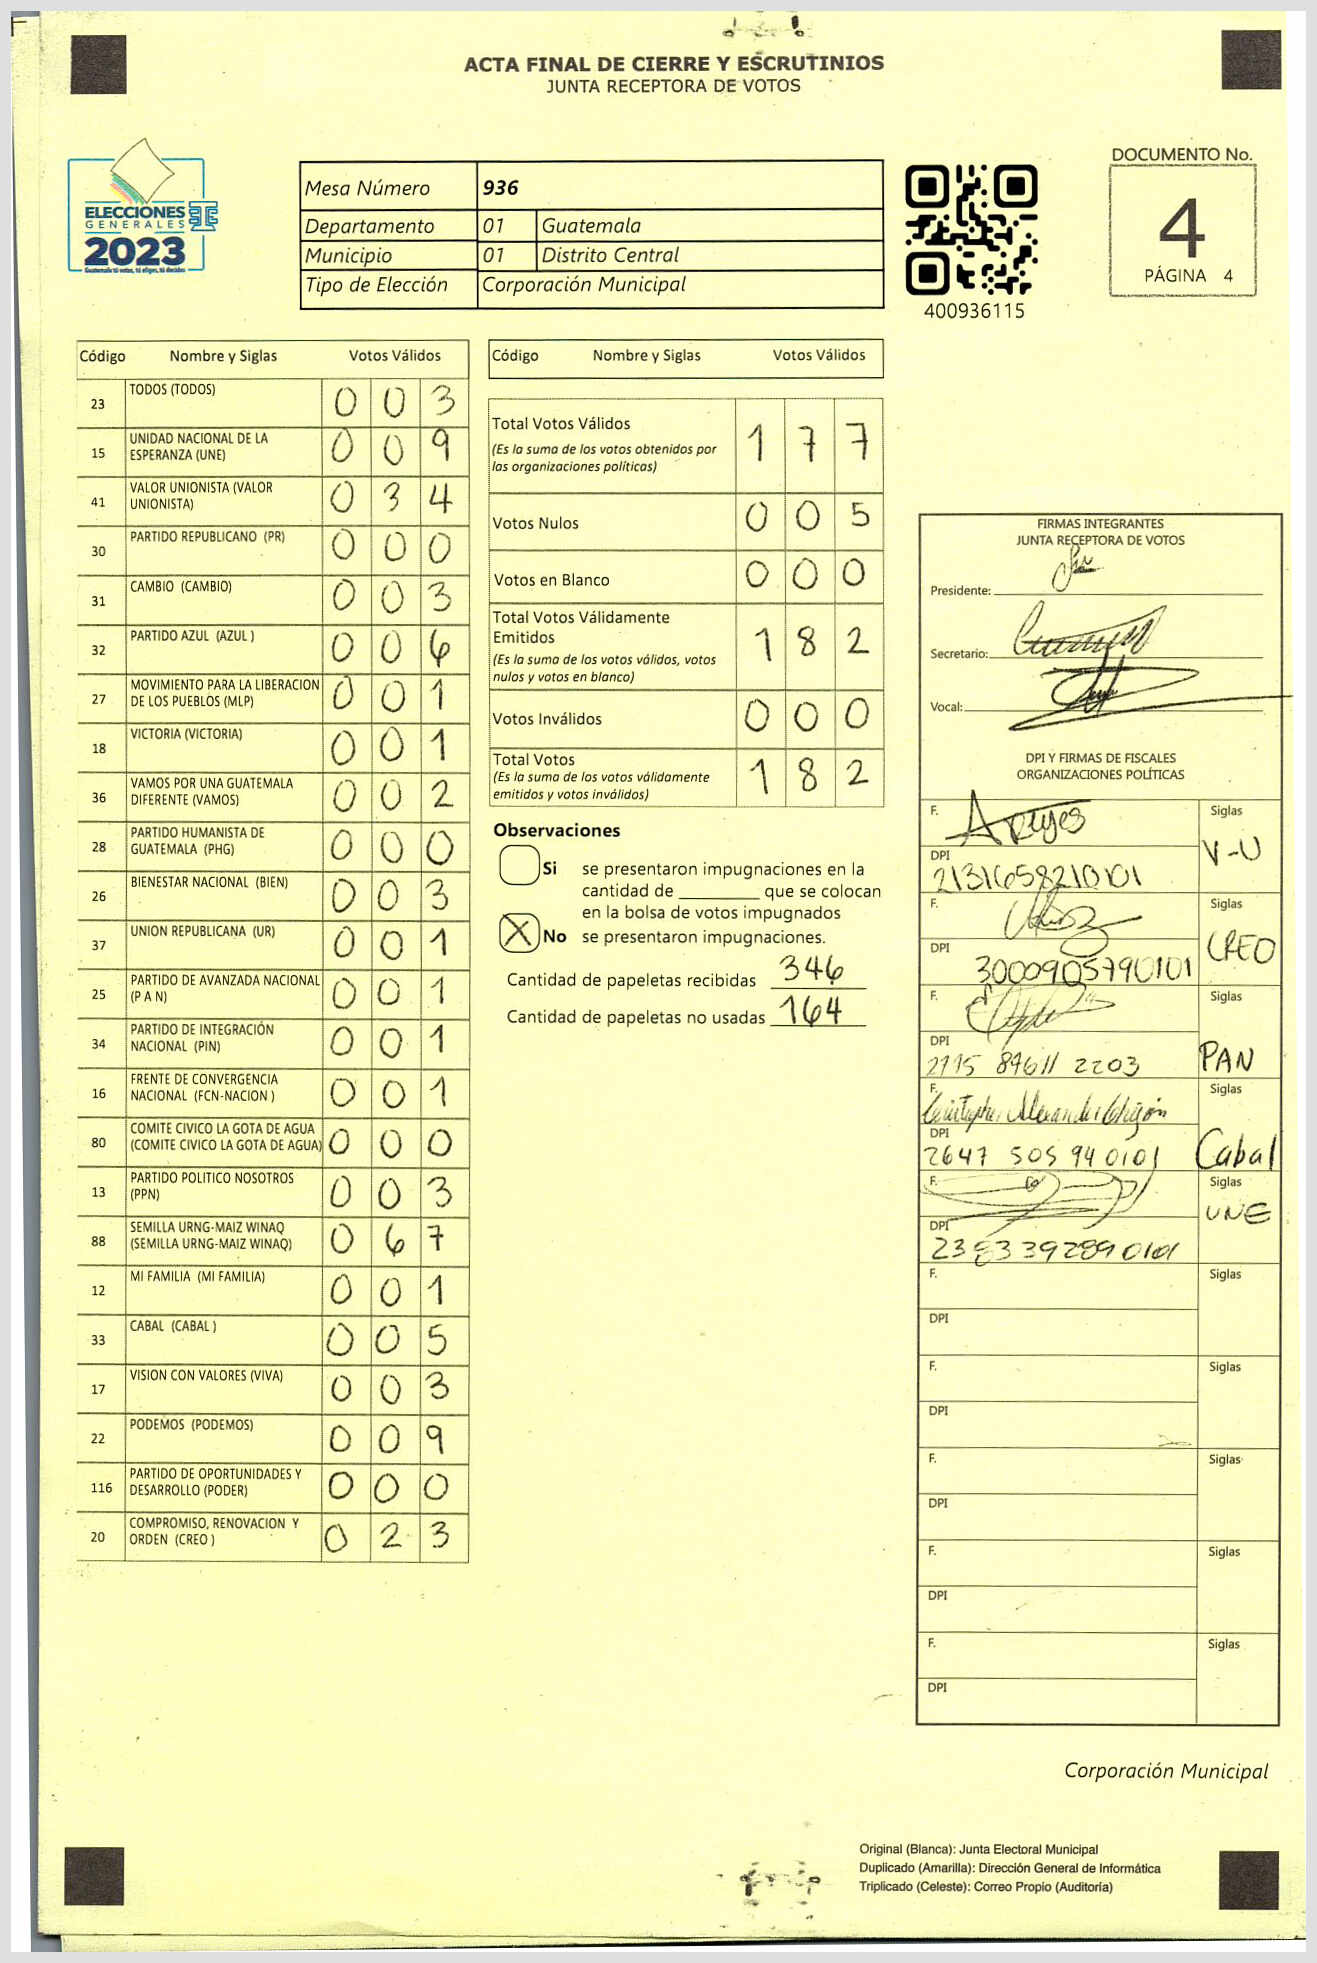 ACTA FINAL DE CIERRE Y ESCRUTINIOS
JUNTA RECEPTORA DE VOTOS
ELECCIONES
GENERALES
2023
Guatemala tú votas, tú eliges, tú decides
Mesa Número 936
Departamento 01 Guatemala
Municipio 01 Distrito Central
Tipo de Elección Corporación Municipal
400936115
DOCUMENTO No.
4
PÁGINA 4
Código Nombre y Siglas Votos Válidos
23 TODOS (TODOS) 0 0 3
15 UNIDAD NACIONAL DE LA
ESPERANZA (UNE) 0 0 9
41 VALOR UNIONISTA (VALOR
UNIONISTA) 0 3 4
30 PARTIDO REPUBLICANO (PR) 0 0 0
31 CAMBIO (CAMBIO) 0 0 3
32 PARTIDO AZUL (AZUL ) 0 0 6
27 MOVIMIENTO PARA LA LIBERACION
DE LOS PUEBLOS (MLP) 0 0 1
18 VICTORIA (VICTORIA) 0 0 1
36 VAMOS POR UNA GUATEMALA
DIFERENTE (VAMOS) 0 0 2
28 PARTIDO HUMANISTA DE
GUATEMALA (PHG) 0 0 0
26 BIENESTAR NACIONAL (BIEN) 0 0 3
37 UNION REPUBLICANA (UR) 0 0 1
25 PARTIDO DE AVANZADA NACIONAL
(P A N) 0 0 1
34 PARTIDO DE INTEGRACIÓN
NACIONAL (PIN) 0 0 1
16 FRENTE DE CONVERGENCIA
NACIONAL (FCN-NACION ) 0 0 1
80 COMITE CIVICO LA GOTA DE AGUA
(COMITE CIVICO LA GOTA DE AGUA) 0 0 0
13 PARTIDO POLITICO NOSOTROS
(PPN) 0 0 3
88 SEMILLA URNG-MAIZ WINAQ
(SEMILLA URNG-MAIZ WINAQ) 0 6 7
12 MI FAMILIA (MI FAMILIA) 0 0 1
33 CABAL (CABAL ) 0 0 5
17 VISION CON VALORES (VIVA) 0 0 3
22 PODEMOS (PODEMOS) 0 0 9
116 PARTIDO DE OPORTUNIDADES Y
DESARROLLO (PODER) 0 0 0
20 COMPROMISO, RENOVACION Y
ORDEN (CREO ) 0 2 3
Código Nombre y Siglas Votos Válidos
Total Votos Válidos 1 7 7
(Es la suma de los votos obtenidos por
las organizaciones políticas)
Votos Nulos 0 0 5
Votos en Blanco 0 0 0
Total Votos Válidamente
Emitidos 1 8 2
(Es la suma de los votos válidos, votos
nulos y votos en blanco)
Votos Inválidos 0 0 0
Total Votos 1 8 2
(Es la suma de los votos válidamente
emitidos y votos inválidos)
Observaciones
Si se presentaron impugnaciones en la
cantidad de que se colocan
en la bolsa de votos impugnados
X No se presentaron impugnaciones.
Cantidad de papeletas recibidas 346
Cantidad de papeletas no usadas 164
FIRMAS INTEGRANTES
JUNTA RECEPTORA DE VOTOS
Presidente:
Secretario:
Vocal:
DPI Y FIRMAS DE FISCALES
ORGANIZACIONES POLÍTICAS
F. AReyes Siglas
V-U
DPI
2131658210101
F. Siglas
CREO
DPI
3000905790101
F. Siglas
PAN
DPI
F. Siglas
Cabal
DPI
2647 505 94 0101
F. Siglas
UNE
DPI
F. Siglas
DPI
F. Siglas
DPI
F. Siglas
DPI
F. Siglas
DPI
F. Siglas
DPI
Corporación Municipal
Original (Blanca): Junta Electoral Municipal
Duplicado (Amarilla): Dirección General de Informática
Triplicado (Celeste): Correo Propio (Auditoría)